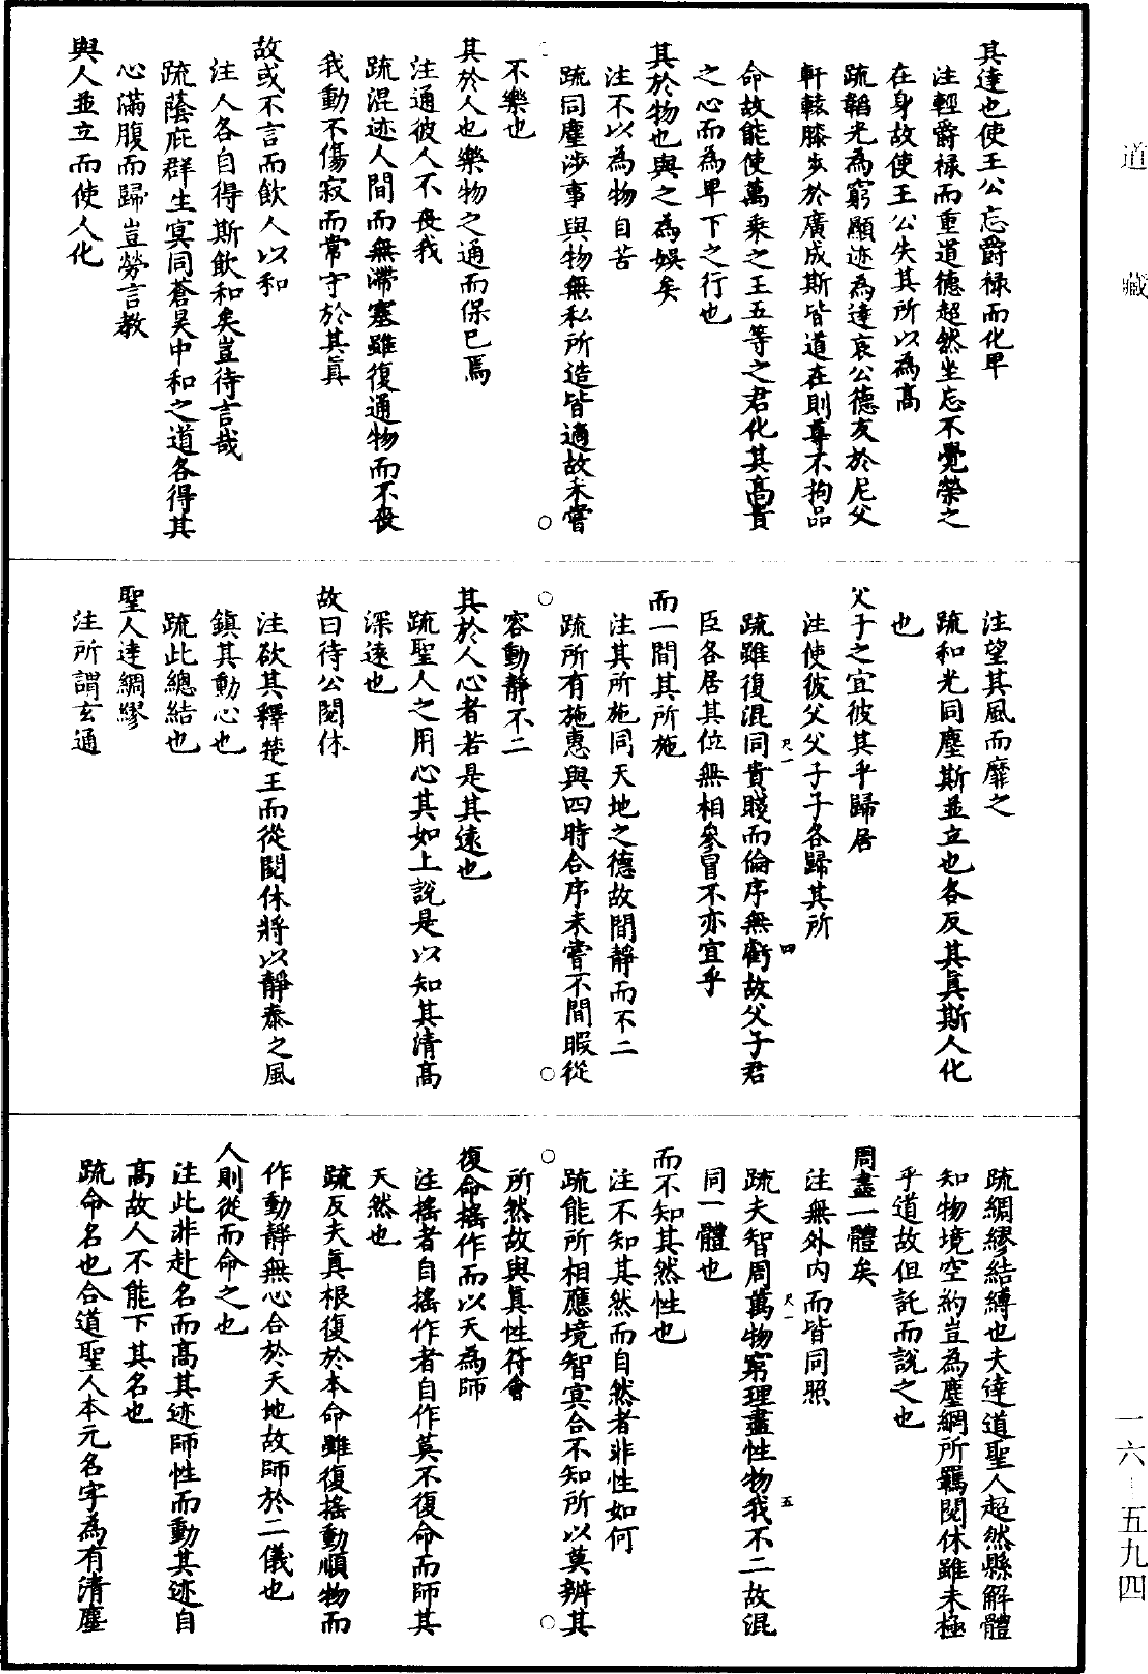 道藏
其達也使王公忘爵祿而化卑
注輕爵祿而重道德超然坐忘不覺榮之
在身故使王公失其所以為高
疏韜光為窮顯迹為達哀公德友於尼父
軒轅膝步於廣成斯皆道在則尊不拘品
命故能使萬乘之王五等之君化其高貴
之心而為卑下之行也
其於物也與之為娛矣
注不以為物自苦
疏同塵涉事與物無私所造皆適故未嘗
不樂也
其於人也樂物之通而保已焉
注通彼人不喪我
疏混迹人間而無滯塞雖復通物而不喪
我動不傷寂而常守於其真
故或不言而飲人以和
注人各自得斯飲和矣豈待言哉
疏蔭庇群生冥同蒼昊中和之道各得其
心滿腹而歸豈勞言教
與人並立而使人化
注望其風而靡之
疏和光同塵斯並立也各反其真斯人化
也
父子之宜彼其乎歸居
注使彼父父子子各歸其所
疏雖復混同貴賤而倫序無虧故父子君
尺一
四
臣各居其位無相參冒不亦宜乎
而一間其所施
注其所施同天地之德故間靜而不二
疏所有施惠與四時合序未嘗不間暇從
容動靜不二
其於人心者若是其遠也
疏聖人之用心其如上說是以知其清高
深遠也
故曰待公閱休
注欲其釋楚王而從閱休將以靜泰之風
鎮其動心也
疏此總結也
聖人達綢繆
注所謂玄通
疏綢繆結縛也夫達道聖人超然縣解體
知物境空約豈為塵網所羈閱休雖未極
乎道故但託而說之也
周盡一體矣
注無外內而皆同照
疏夫智周萬物窮理盡性物我不二故混
尺一
五
同一體也
而不知其然性也
注不知其然而自然者非性如何
疏能所相應境智冥合不知所以莫辨其
所然故與真性符會
復命搖作而以天為師
注搖者自搖作者自作莫不復命而師其
天然也
疏反夫真根復於本命雖復搖動順物而
作動靜無心合於天地故師於二儀也
人則從而命之也
注此非赴名而高其迹師性而動其迹自
高故人不能下其名也
疏命名也合道聖人本元名字為有清塵
一六–五九四